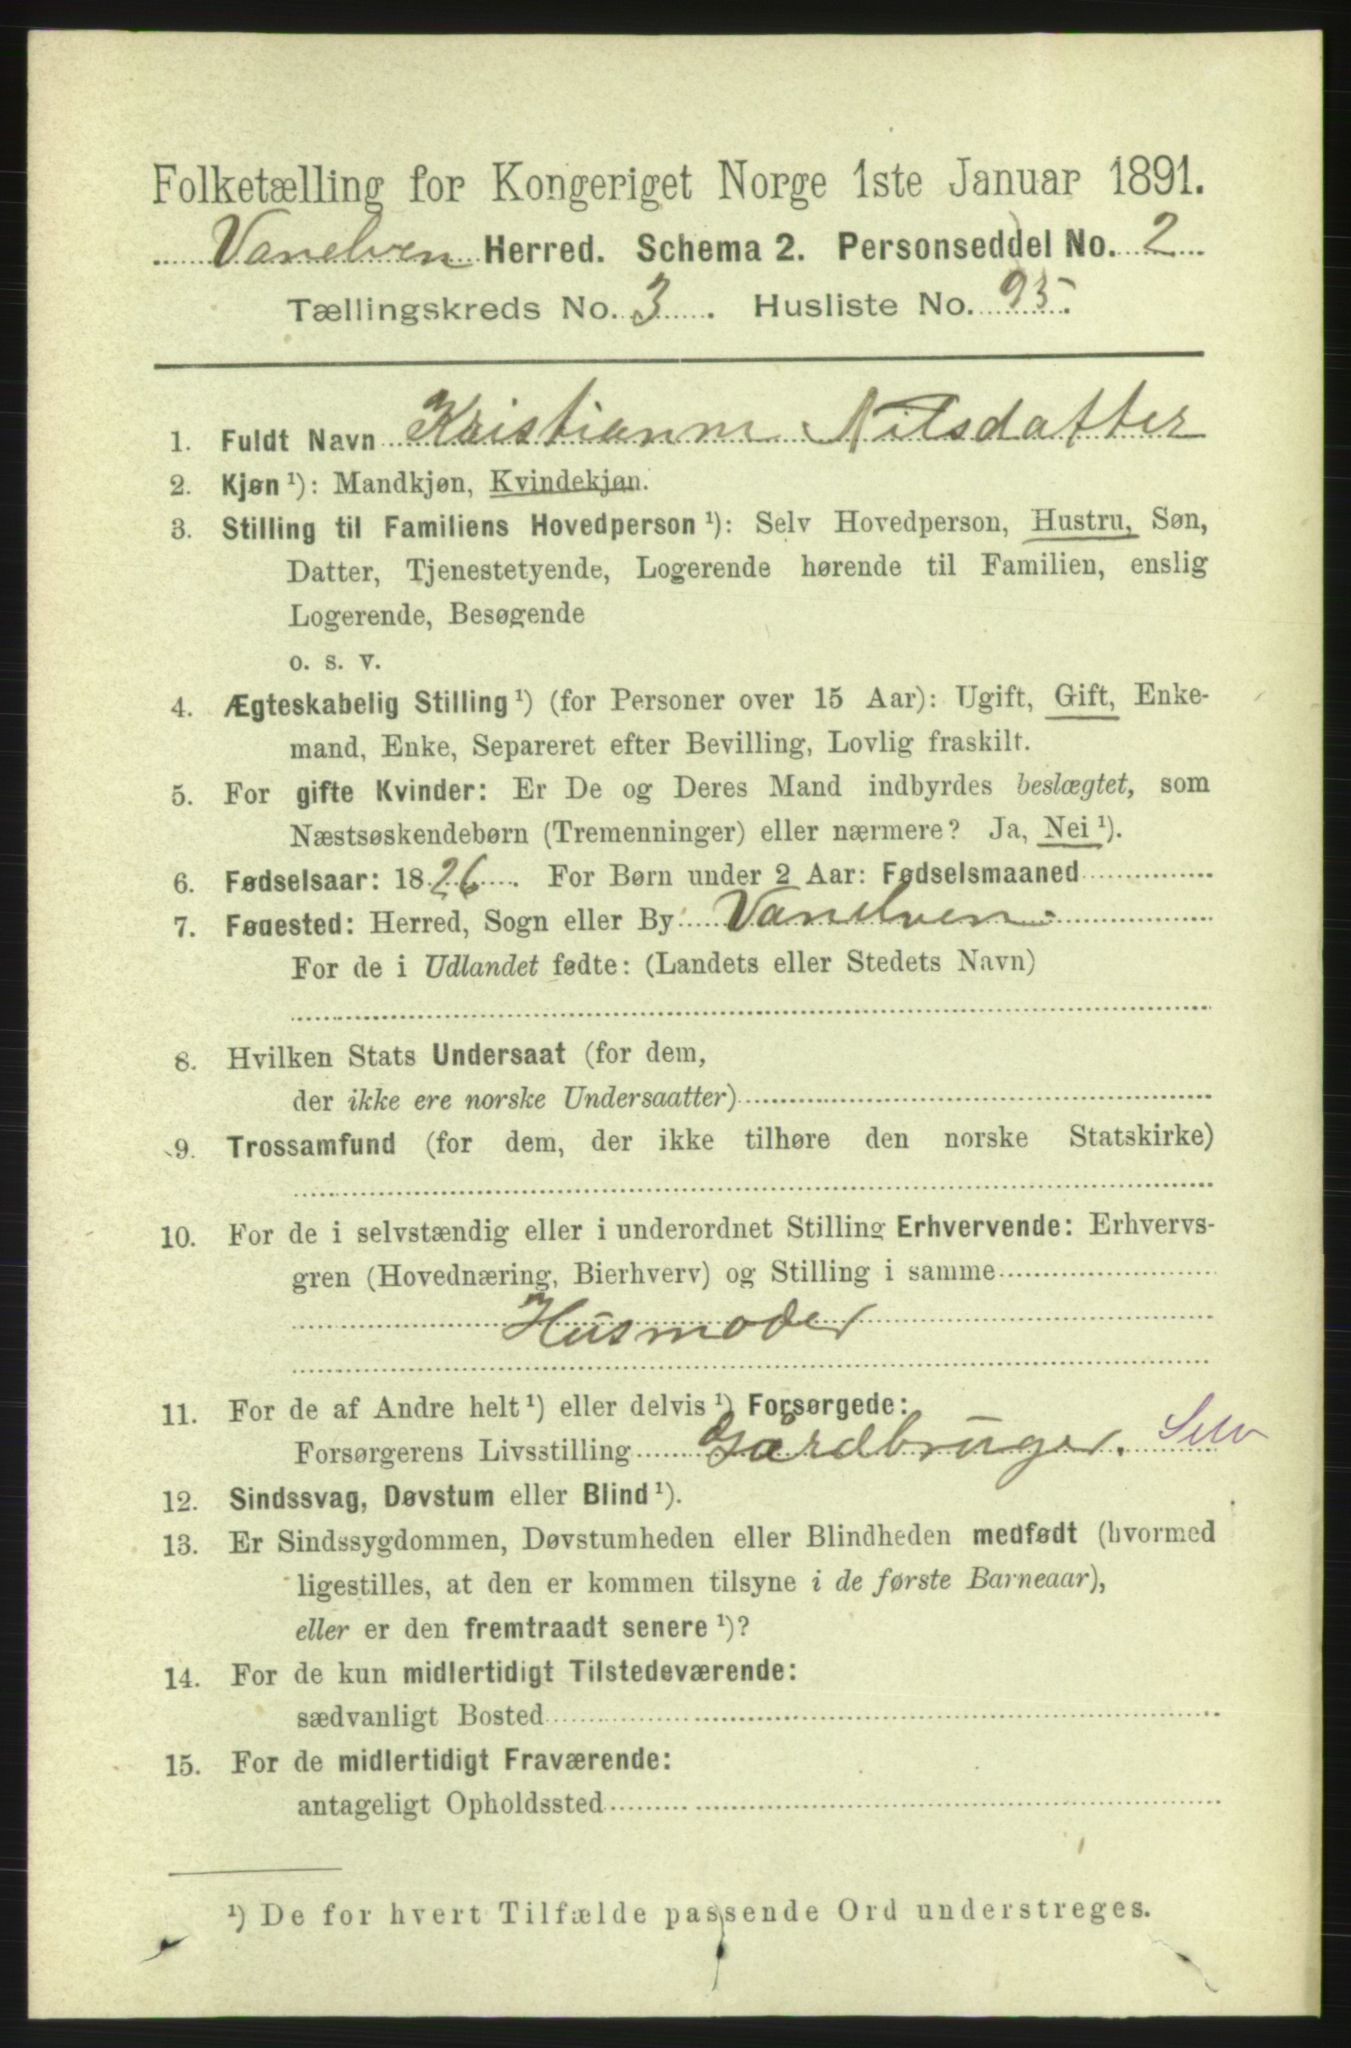 Folketælling for Kongeriget Norge 1ste Januar 1891.
Vanelven Herred. Schema 2. Personseddel No. 2
Tællingskreds No. 3. Husliste No. 95.
1. Fuldt Navn Kristianne Nilsdatter
2. Kjøn ¹): Mandkjøn, Kvindekjøn.
3. Stilling til Familiens Hovedperson ¹): Selv Hovedperson, Hustru, Søn,
Datter, Tjenestetyende, Logerende hørende til Familien, enslig
Logerende, Besøgende
o. s. v.
4. Ægteskabelig Stilling ¹) (for Personer over 15 Aar): Ugift, Gift, Enke-
mand, Enke, Separeret efter Bevilling, Lovlig fraskilt.
5. For gifte Kvinder: Er De og Deres Mand indbyrdes beslægtet, som
Næstsøskendebørn (Tremenninger) eller nærmere? Ja, Nei ¹).
6. Fødselsaar: 1826. For Børn under 2 Aar: Fødselsmaaned
7. Fødested: Herred, Sogn eller By Vanelven.
For de i Udlandet fødte: (Landets eller Stedets Navn)
8. Hvilken Stats Undersaat (for dem,
der ikke ere norske Undersaatter)
9. Trossamfund (for dem, der ikke tilhøre den norske Statskirke)
10. For de i selvstændig eller i underordnet Stilling Erhvervende: Erhvervs-
gren (Hovednæring, Bierhverv) og Stilling i samme
Husmoder
11. For de af Andre helt ¹) eller delvis ¹) Forsørgede:
Forsørgerens Livsstilling Gårdbruger. Selv
12. Sindssvag, Døvstum eller Blind ¹).
13. Er Sindssygdommen, Døvstumheden eller Blindheden medfødt (hvormed
ligestilles, at den er kommen tilsyne i de første Barneaar),
eller er den fremtraadt senere ¹)?
14. For de kun midlertidigt Tilstedeværende:
sædvanligt Bosted
15. For de midlertidigt Fraværende:
antageligt Opholdssted
¹) De for hvert Tilfælde passende Ord understreges.